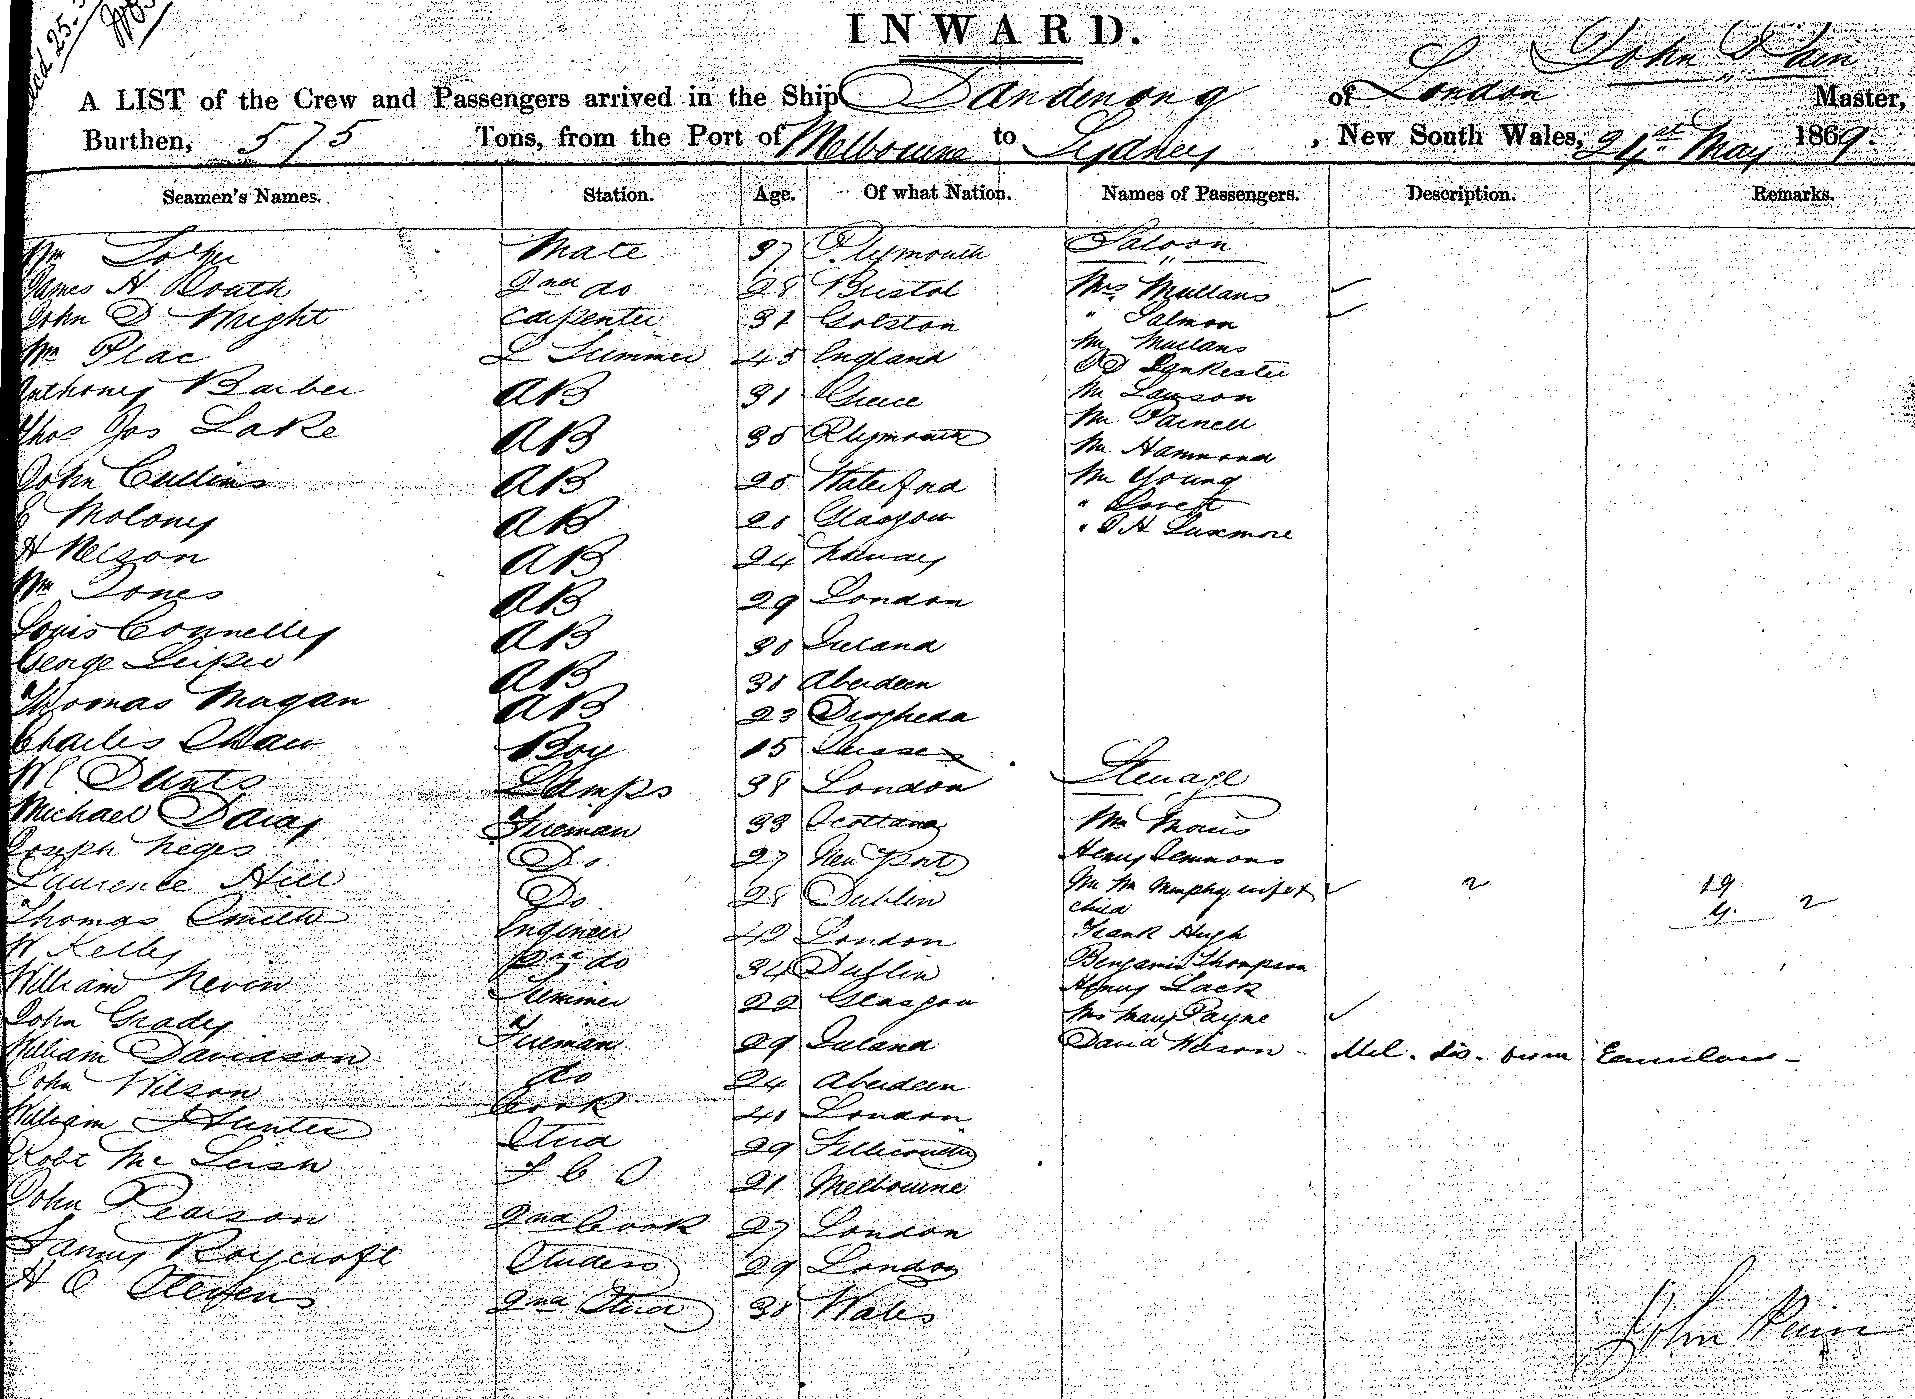 INWARD.
John Pain
A LIST of the Crew and Passengers arrived in the Ship Dandenong of London Master,
Burthen, 575 Tons, from the Port of Melbourne to Sydney, New South Wales, 24st May 1869.
Seamen's Names. Station. Age. Of what Nation. Names of Passengers. Description. Remarks.
Wm Mate 37 Plymouth Saloon
James H Routh 2nd do 28 Bristol Mrs Mullans
John D Wright Carpenter 31 " Salmon
Wm 45 England Mr Mullans
D Lankester
Anthony Barber AB 31 Greece Mr Lawson
Thos Jos Lake AB 30 Plymouth Mr Parnell
Mr Hammond
John Cullins AB 20 Waterford Mr Young
Molony AB 20 Glasgow " Lovett
" H Luxmore
H Nelson AB 24 Norway
Wm Jones AB 29 London
Louis Connelly AB 30 Ireland
George Leiper AB 30 Aberdeen
Thomas Magan AB 23 Drogheda
Charles Shaw Boy 15 Sussex
W Dents Lamps 38 London Steerage
Michael Davy Fireman 33 Scotland Mr Moris
Joseph Neges Do 27 New Port Henry Lemmons
Laurence Hill Do 28 Dublin Mr Wm Murphy wife & child 2 19
4 2
Thomas Smith Engineer 42 London Frank Hugh
W Kelly do 34 Dublin Benjamin Thompson
William Nevin Trimmer 22 Glasgow Henry Lack
Mrs Mary Payne
John Grady Fireman 29 Ireland David Wilson - Mil. dis. from
William Davidson do 24 Aberdeen
John Wilson Cook 40 London
William Hunter Stwd 29 Tillicoultry
Robt Mc Leish 21 Melbourne
John Pearson 2nd Cook 27 London
Fanny Roycroft Studess 29 London
H C Stevens 2nd Stwd 30 Wales
John Pain